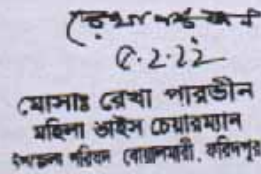 ৫.২.২২
মোসাঃ রেখা পারভীন
মহিলা ভাইস চেয়ারম্যান
উপজেলা পরিষদ বোয়ালমারী, ফরিদপুর